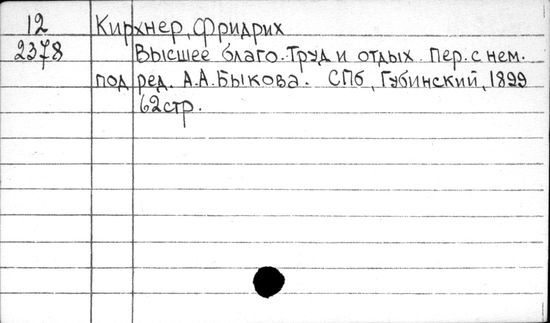 12 Кирхнер, Фридрих
2378 Высшее благо. Труд и отдых. Пер. с нем.
под ред. А.А.Быкова. СПб, Губинский, 1899
62стр.